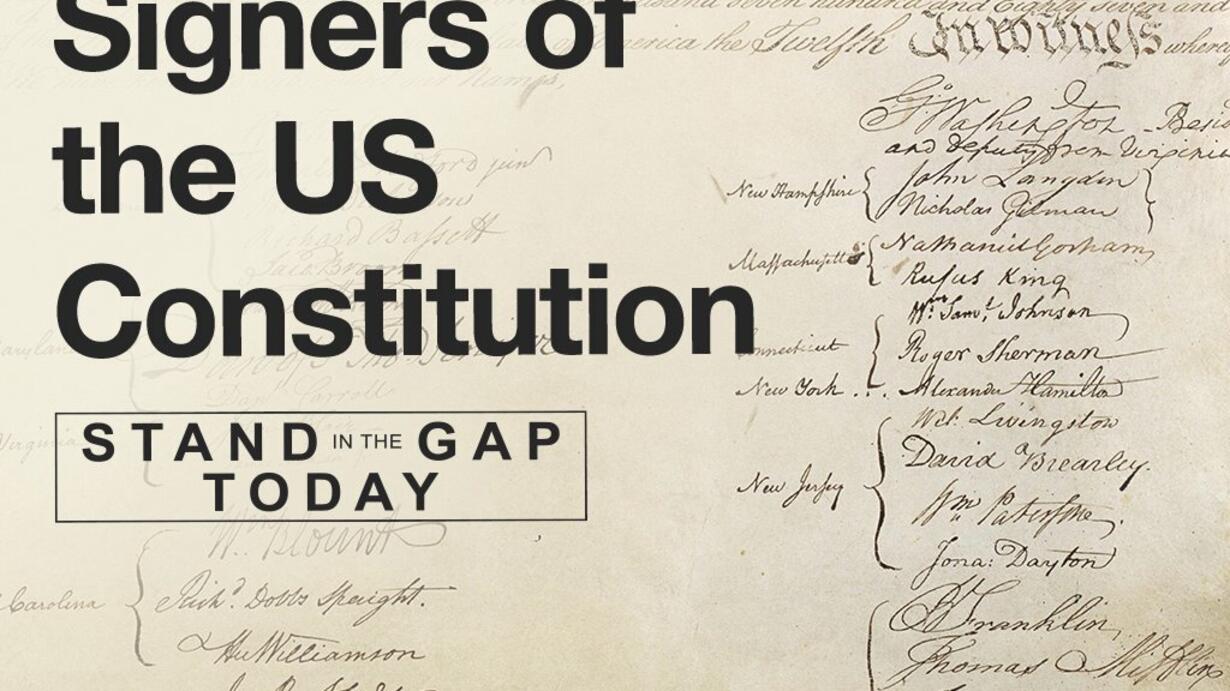 Signers of
the US
Constitution
STAND IN THE GAP
TODAY
seven hundred and Eighty seven and
of America the Twelfth In witness where
Names,
G. Washington
and deputy from Virginia
New Hampshire { John Langdon }
Nicholas Gilman
Massachusetts { Nathaniel Gorham
Rufus King
Wm. Saml. Johnson
Connecticut { Roger Sherman
New York . . . Alexander Hamilton
Wil: Livingston
David Brearley.
New Jersey { Wm. Paterson.
Jona: Dayton
B Franklin
Thomas Mifflin
jun
Richard Bassett
Jaco Broom
Danl Carroll
Virginia
Wm. Blount
Carolina { Richd. Dobbs Spaight.
Hu Williamson